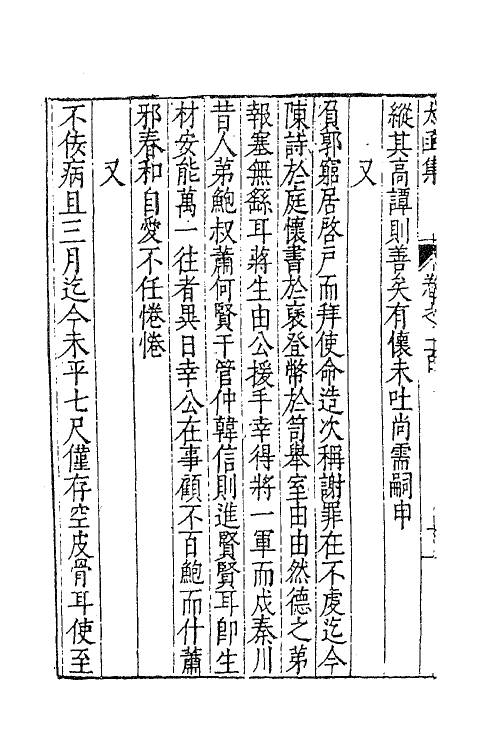 太函集 卷之一百
縱其高譚則善矣有懷未吐尚需嗣申
又
負郭窮居啓戶而拜使命造次稱謝罪在不虔迄今
陳詩於庭懷書於褎登幣於笥舉室由由然德之弟
報塞無繇耳蔣生由公援手幸得將一軍而戍秦川
昔人弟鮑叔蕭何賢于管仲韓信則進賢賢耳卽生
材安能萬一往者異日幸公在事顧不百鮑而什蕭
邪春和自愛不任惓惓
又
不佞病且三月迄今未平七尺僅存空皮骨耳使至